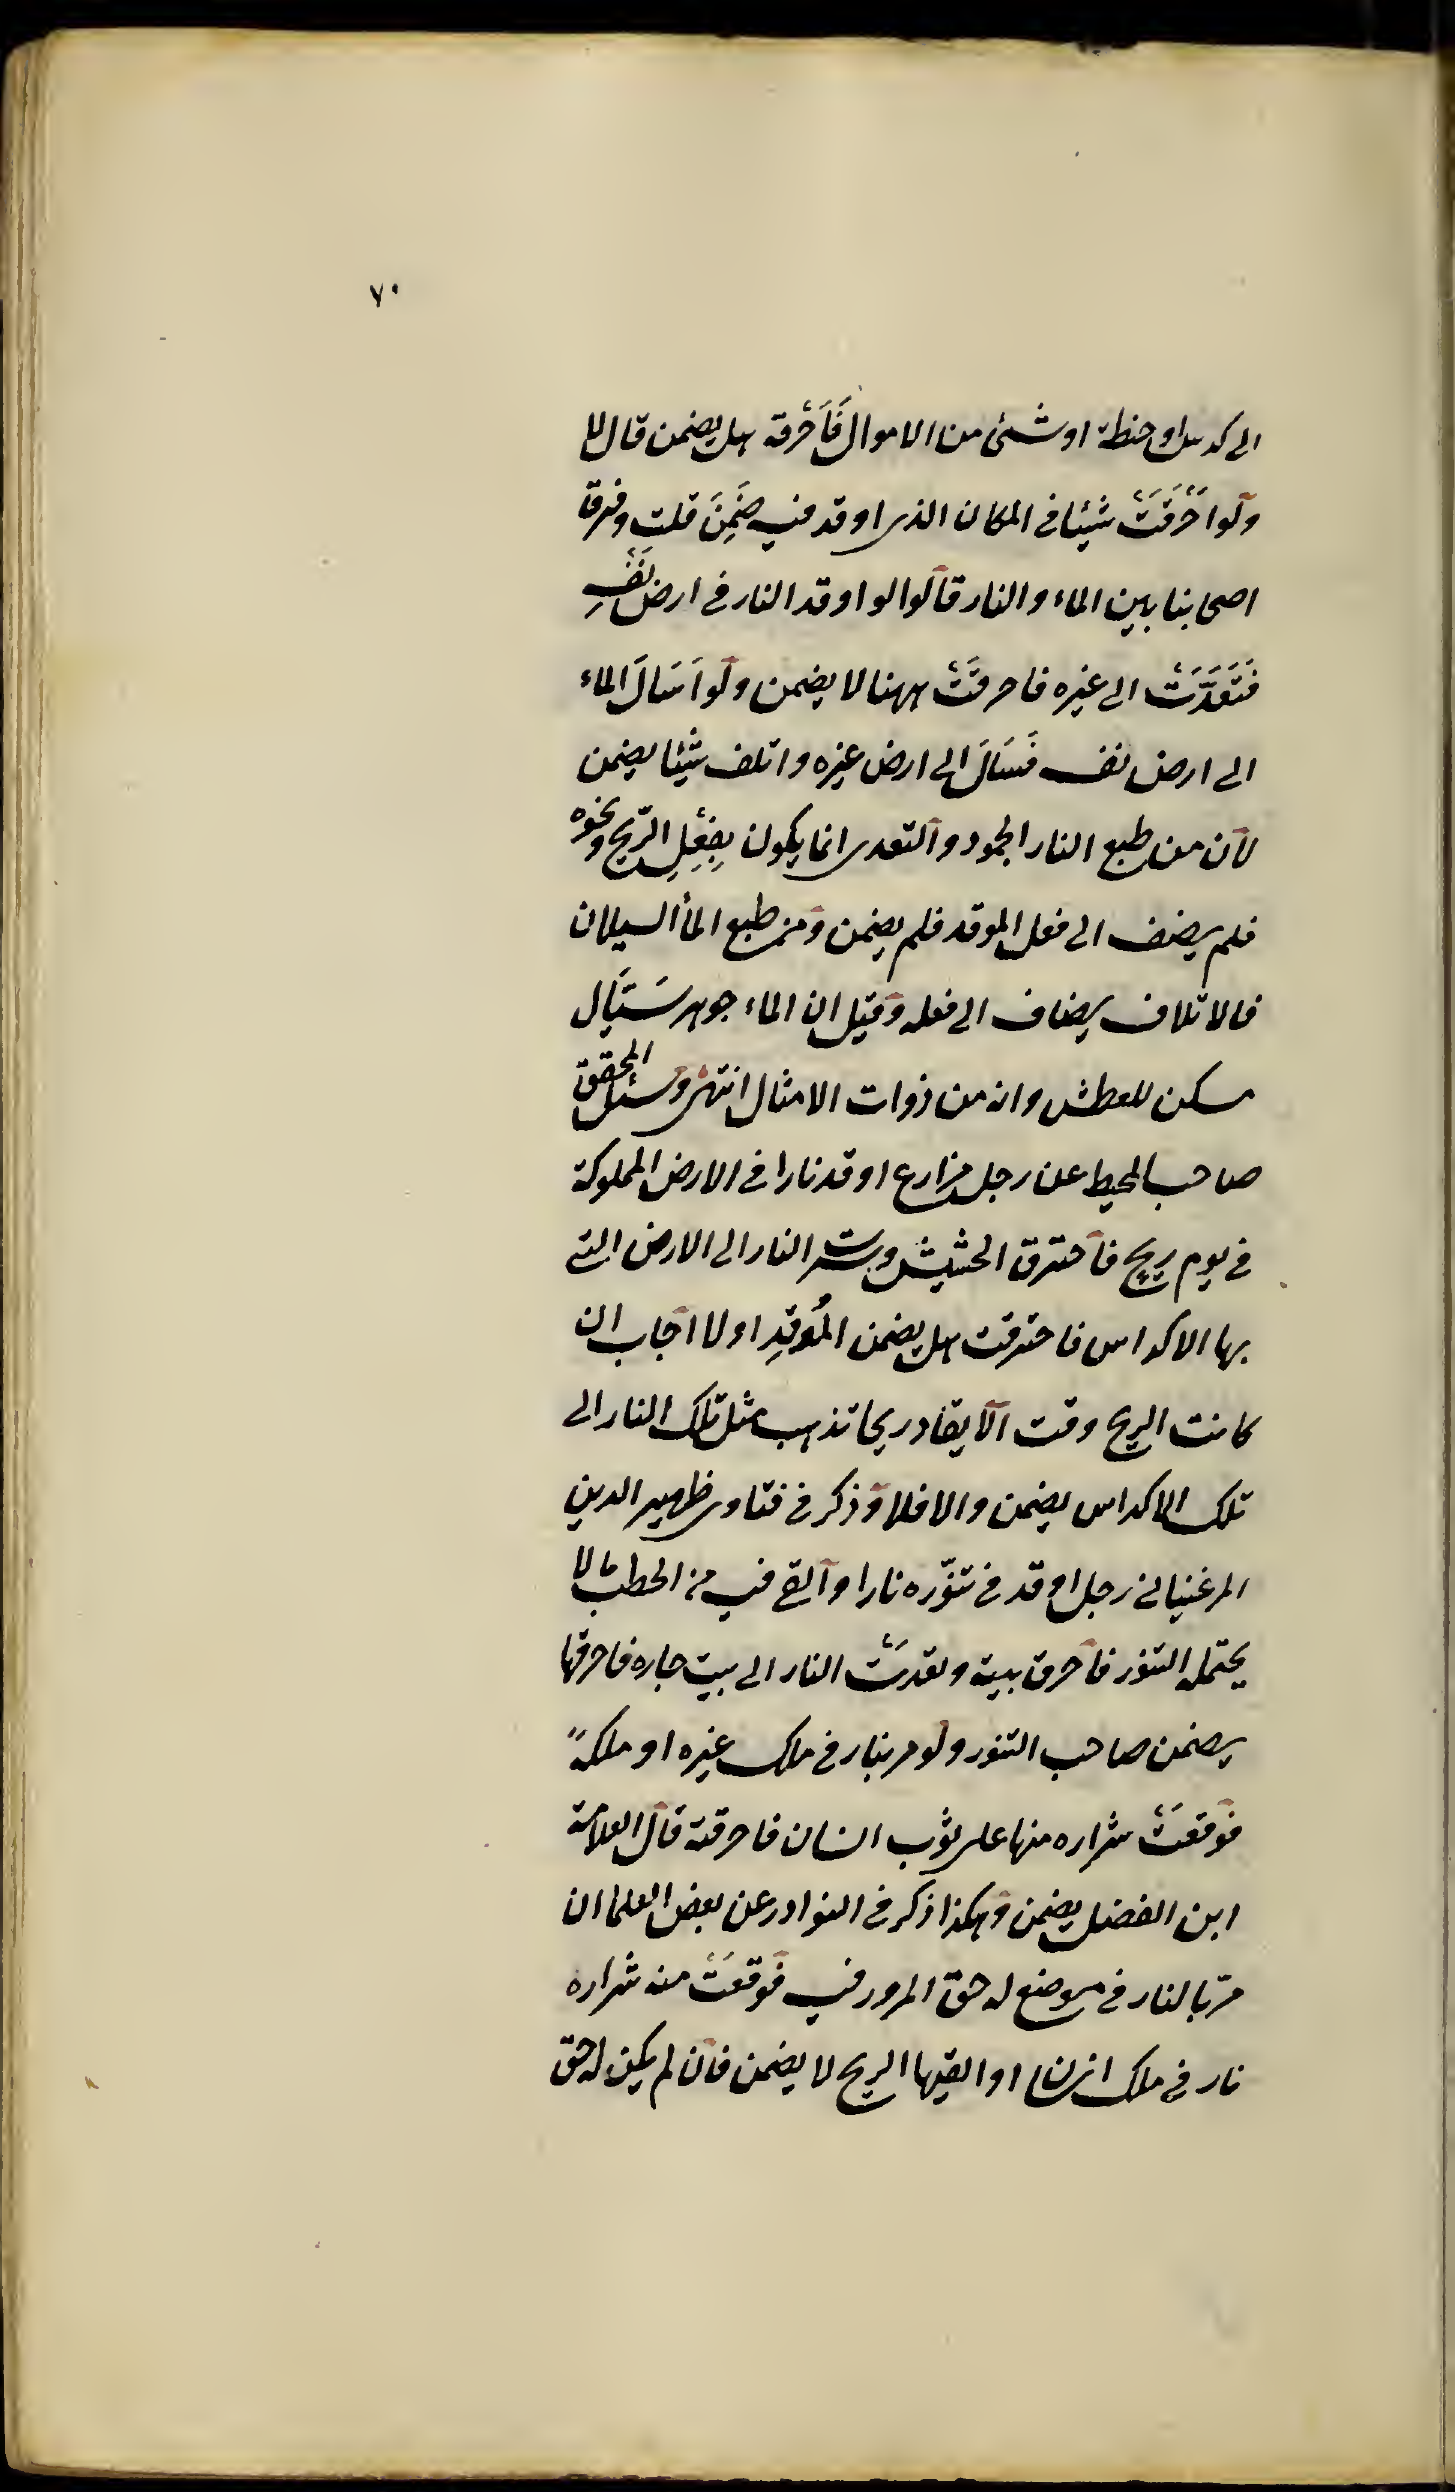 ٧٠
الى كدس او حنطة او شئ من الاموال فَاَحْرقه هل يضمن قال لا
ولو اَحْرَقَتْ شيئا في المكان الذى اوقد فيه ضَمِنَ قلت وفرق
اصحابنا بين الماء والنار قالوا لو اوقد النار في ارض نَفْسِه
فَتَعَدَّتْ الى غيره فاحرقَتْ ههنا لا يضمن ولو اَسَالَ الماء
الى ارض نفسه فَسَالَ الى ارض غيره واتلف شيئا يضمن
لان من طبع النار الجمود والتعدى انما يكون بِفِعْلِ الرّيح ونحوه
فلم يضف الى فعل الموقد فلم يضمن ومن طبع المأ السيلان
فالاتلاف يضاف الى فعله وقيل ان الماء جوهر سَيَّال
مسكن للعطش وانه من ذوات الامثال انتهى وسئل المحقق
صاحب المحيط عن رجل مزارع اوقد نارا في الارض المملوكة
في يوم ريح فاحترق الحشيش وسرت النار الى الارض التى
بها الاكداس فاحترقت هل يضمن المُوقِد او لا اجاب ان
كانت الريح وقت الايقاد ريحا تذهب مثل تلك النار الى
تلك الاكداس يضمن والا فلا وذكر في فتاوى ظهير الدين
المرغينانى رجل اوقد في تنوّره نارا والقى فيه من الحطب ما لا
يحتمله التنور فاحرق بيته وتعدتْ النار الى بيت جاره فاحرقها
يضمن صاحب التنور ولو مر بنار في ملك غيره او ملكه
فوقعَتْ شراره منها على ثوب انسان فاحرقته قال العلامة
ابن الفضل يضمن وهكذا ذكر في النوادر عن بعض العلما ان
مرّ بالنار في موضع له حق المرور فيه فوقعَتْ منه شراره
نار في ملك انسان او القيها الريح لا يضمن فان لم يكن له حق